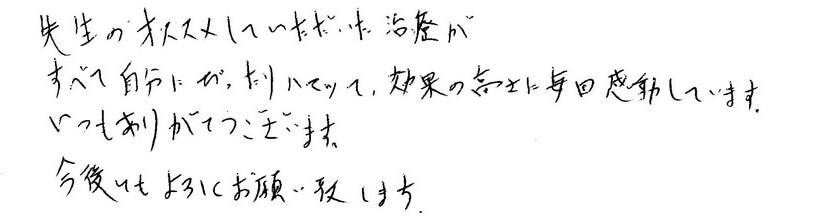 先生のオススメしていただいた治療が
すべて自分にぴったりハマッて、効果の高さに毎回感動しています。
いつもありがとうございます。
今後ともよろしくお願い致します。